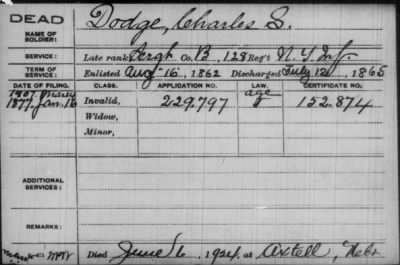 DEAD
Dodge, Charles S.
NAME OF SOLDIER:
SERVICE: Late rank Sergt Co. B, 125 Reg't N.Y. Inf.
TERM OF SERVICE: Enlisted Aug 16, 1862 Discharged July 12, 1865
DATE OF FILING. CLASS. APPLICATION NO. LAW. CERTIFICATE NO.
1907
1877, Jan. 16 Invalid, 229.797 age 152.874
Widow,
Minor,
ADDITIONAL SERVICES:
REMARKS:
Died June 6, 1924, at Axtell, Nebr